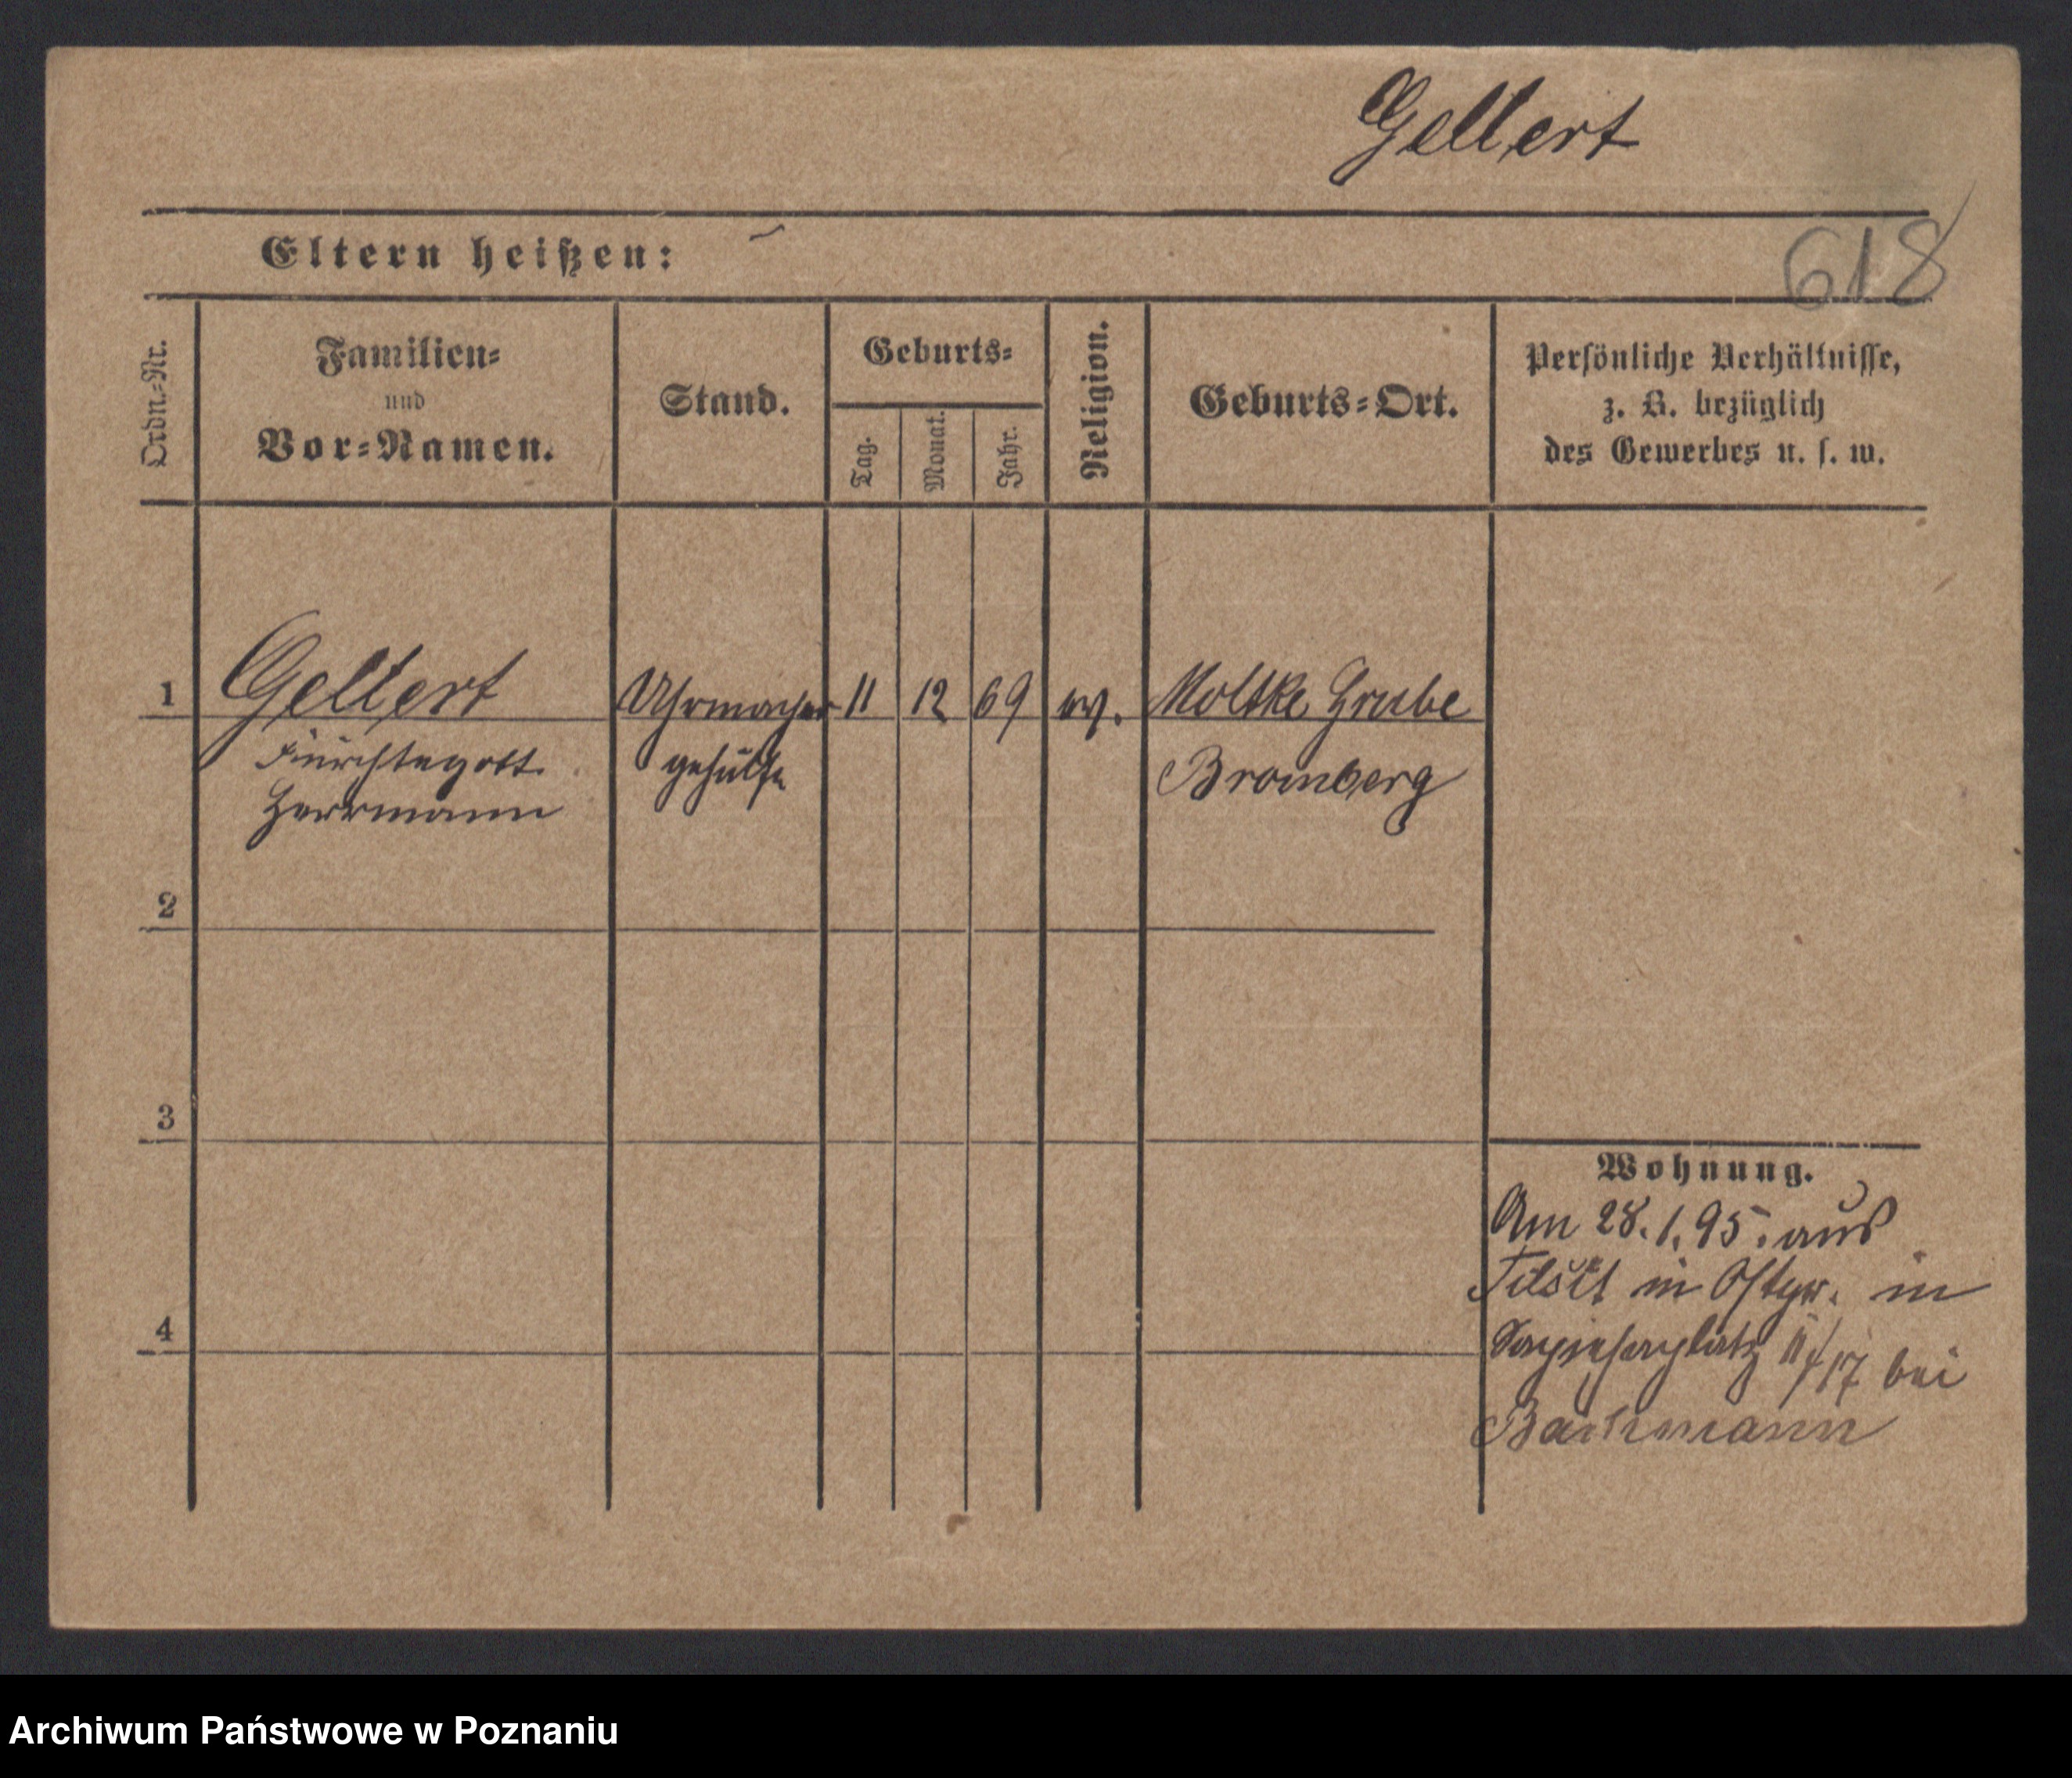 Gellert
Eltern heißen: –
618
Ordn.-Nr.
Familien-
und
Vor-Namen.
Stand.
Geburts-
Tag.
Monat.
Jahr.
Religion.
Geburts-Ort.
Persönliche Verhältnisse,
z. B. bezüglich
des Gewerbes u. s. w.
1 Gellert Uhrmacher 11 12 69 ev. Moltke Grube
Fürchtegott gehülfe Bromberg
Herrmann
2
3
Wohnung.
Am 28.1.95. aus
Tilsit in Ostpr. in
Sapiehaplatz 11/17 bei
4
Bachmann
Archiwum Państwowe w Poznaniu